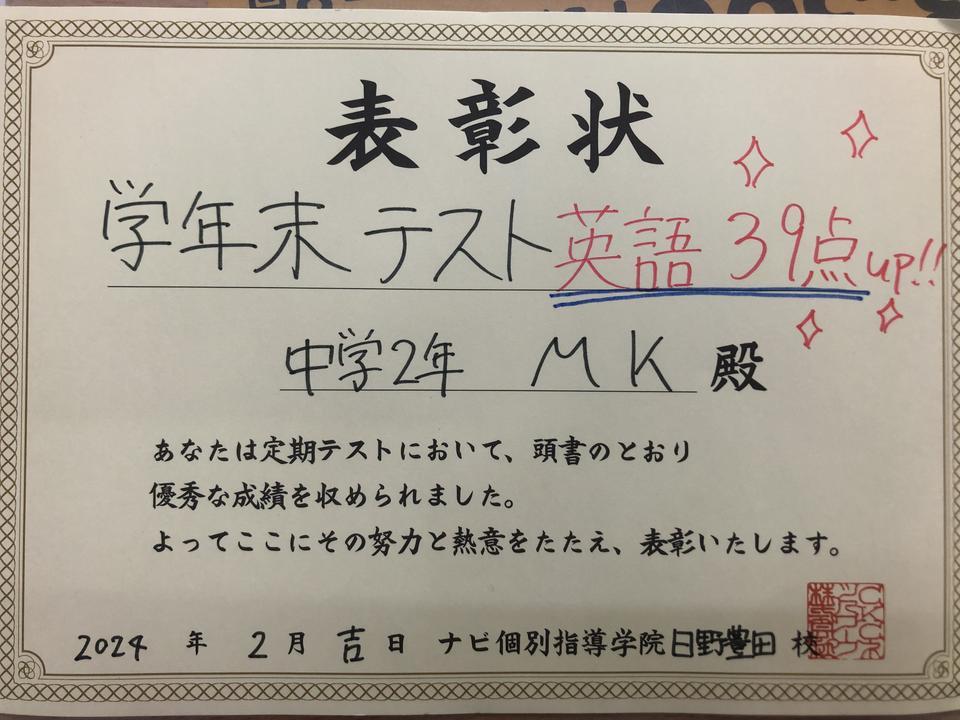 表彰状
学年末 テスト 英語 39点up!!
中学2年 MK 殿
あなたは定期テストにおいて、頭書のとおり
優秀な成績を収められました。
よってここにその努力と熱意をたたえ、表彰いたします。
2024 年 2 月 吉 日 ナビ個別指導学院 日野豊田 校